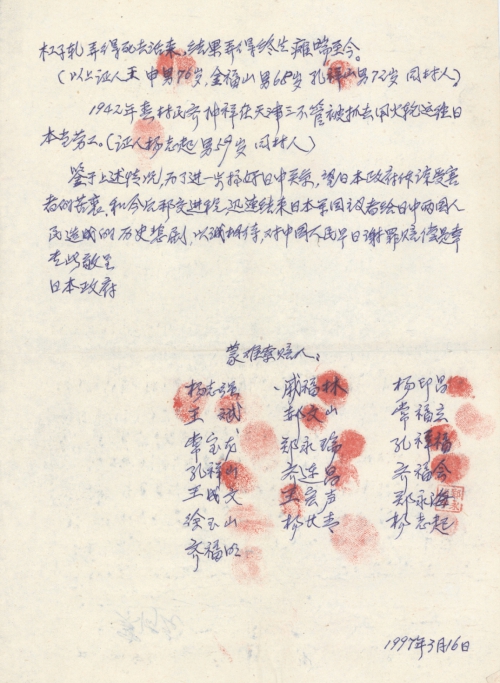 杠子轧弄得死去活来，结果弄得终生瘫喘至今。
（以上证人王申男76岁，金福山男68岁孔祥山男72岁同村人）
1942年 村民齐仲祥在天津三不管被抓去用火轮运往日
本当劳工。（证人杨志起男59岁同村人）
鉴于上述情况，为了进一步搞好日中关系，望日本政府体谅受害
者的苦衷，和今后邦交进程，迅速结束日本军国主义者给日中两国人
民造成的历史悲剧，以诚相待，对中国人民早日谢罪赔偿是幸
专此敬呈
日本政府
蒙难索赔人：
杨志强 戚福林 杨印昌
王斌 郝文山 常福立
常宝友 郑永瑞 孔祥福
孔祥山 齐连昌 齐福会
王成文 王宏声 郑永海
徐玉山 杨 杨志起
齐福旺
1997年3月16日